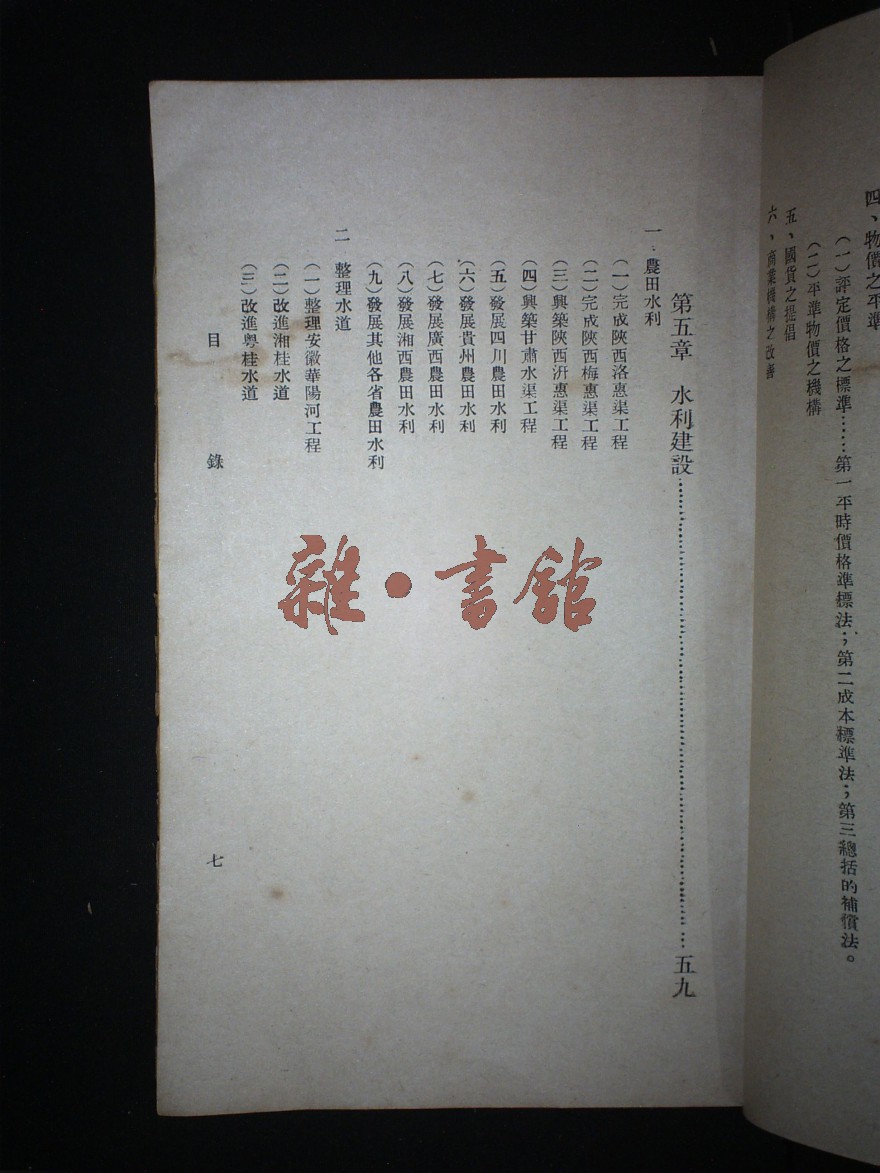 四、物價之平準
（一）評定價格之標準……第一平時價格準標法；第二成本標準法；第三總括的補償法。
（二）平準物價之機構
五、國貨之提倡
六、商業機構之改善
第五章　水利建設…………五九
一、農田水利
（一）完成陝西洛惠渠工程
（二）完成陝西梅惠渠工程
（三）興築陝西汧惠渠工程
（四）興築甘肅水渠工程
（五）發展四川農田水利
（六）發展貴州農田水利
（七）發展廣西農田水利
（八）發展湘西農田水利
（九）發展其他各省農田水利
二　整理水道
（一）整理安徽華陽河工程
（二）改進湘桂水道
（三）改進粵桂水道
目錄
七
雜·書館